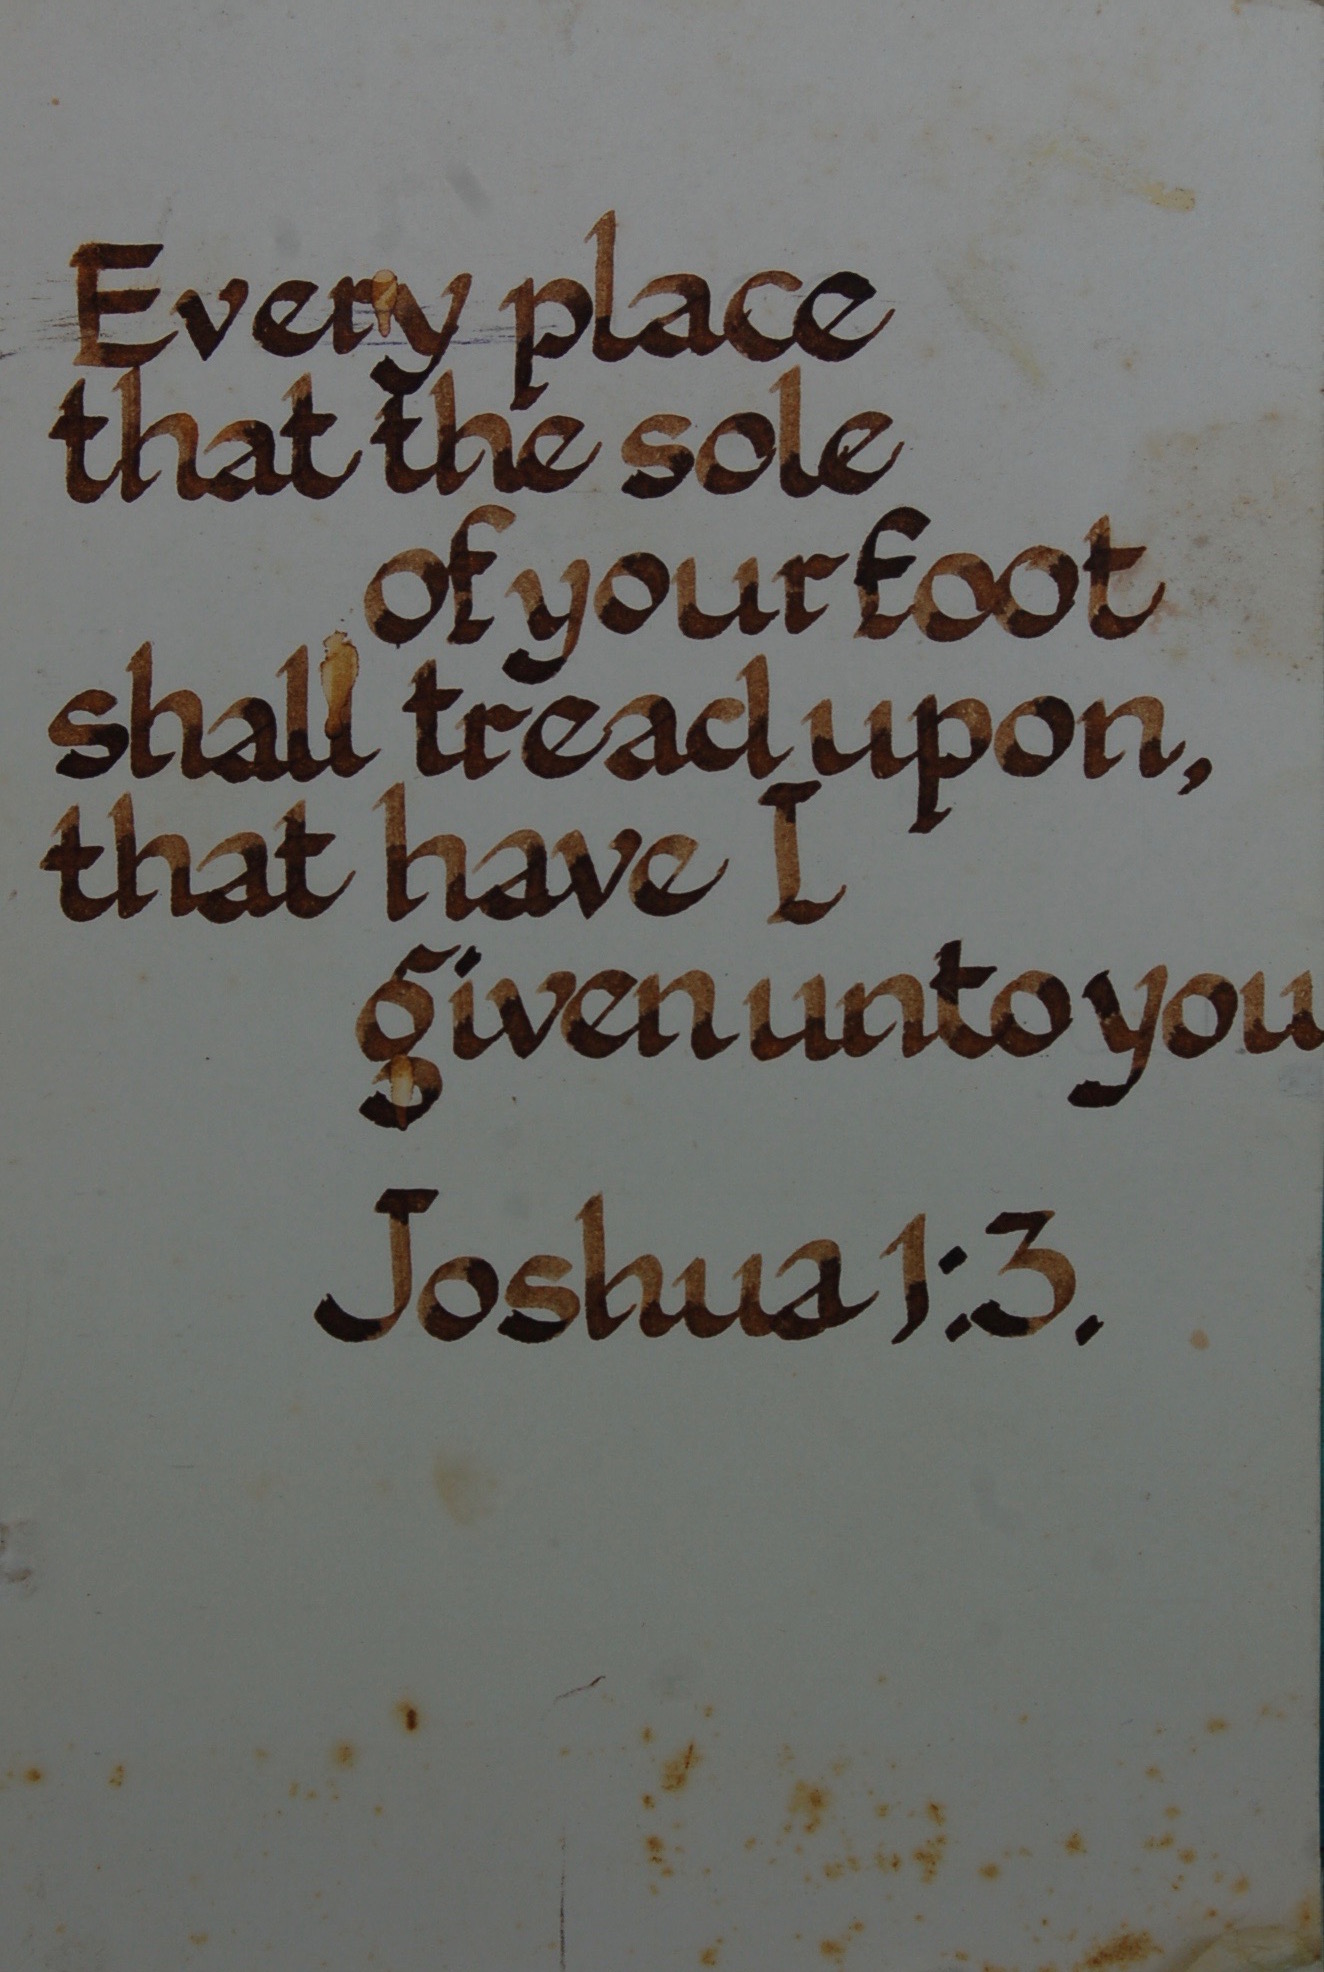 Every place
that the sole
of your foot
shall tread upon,
that have I
given unto you
Joshua 1:3.